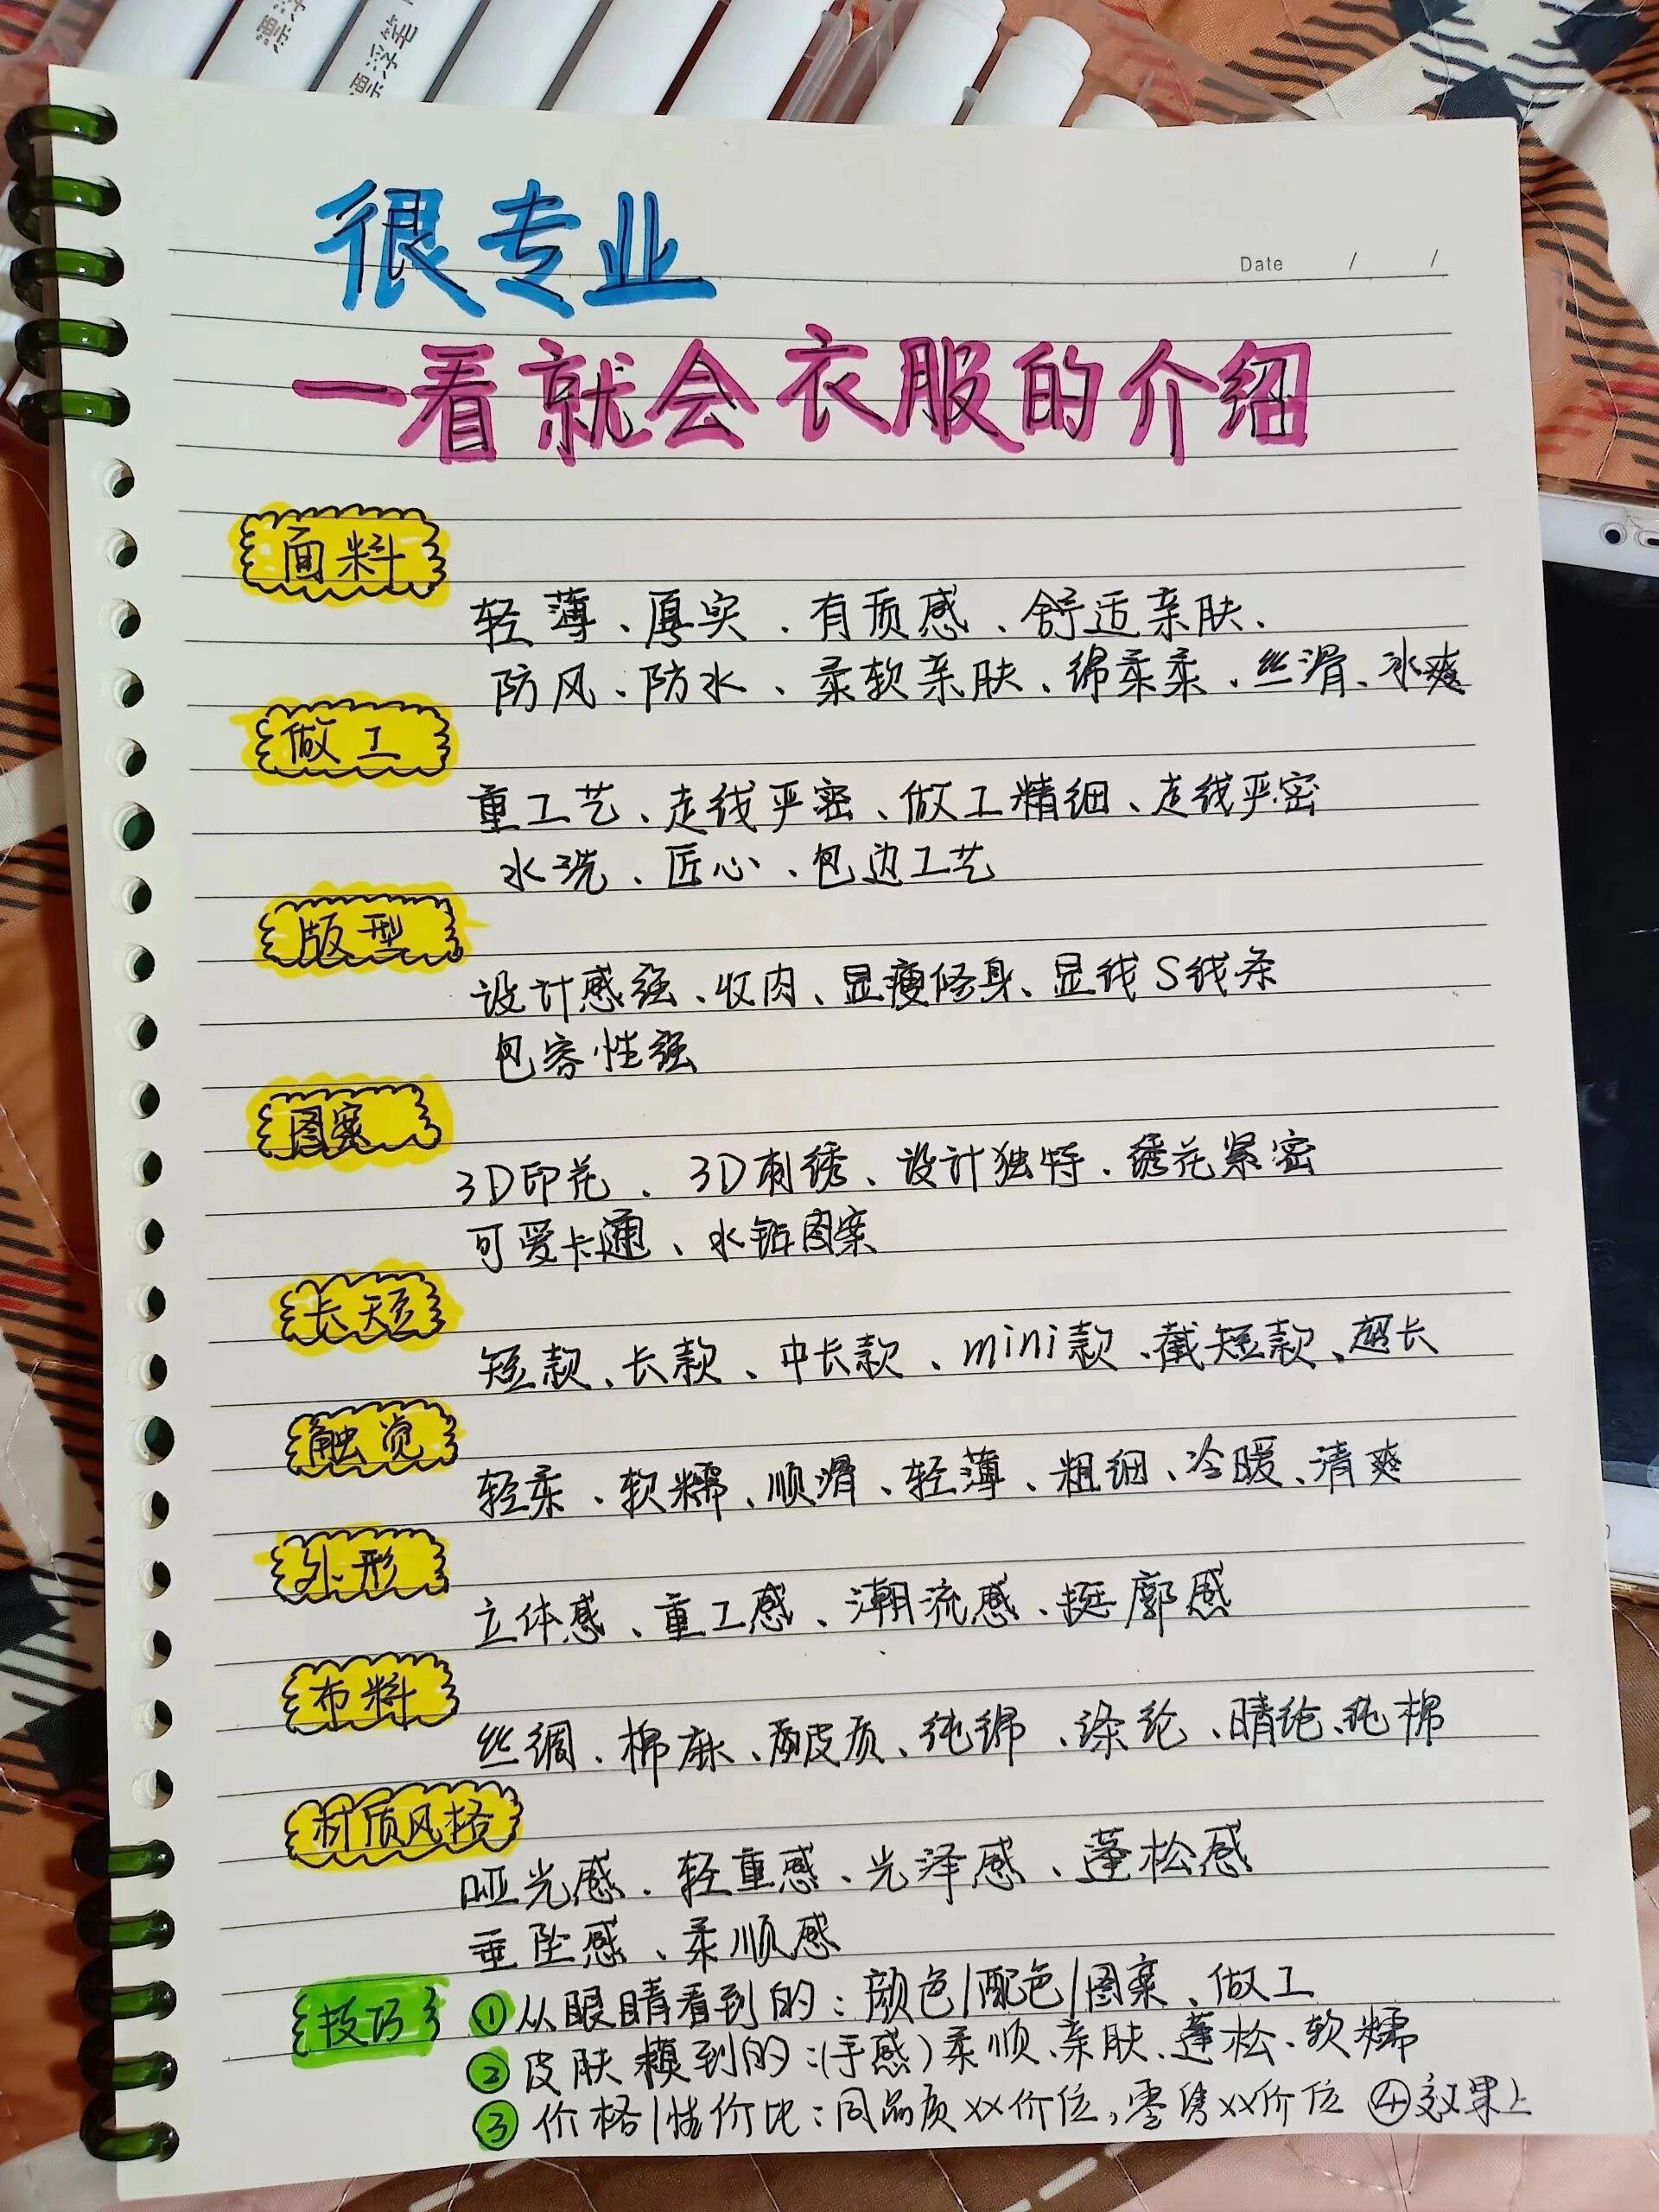 很专业
Date / /
一看就会衣服的介绍
面料
轻薄、厚实、有质感、舒适亲肤、
防风、防水、柔软亲肤、绵柔柔、丝滑、冰爽
做工
重工艺、走线严密、做工精细、走线严密
水洗、匠心、包边工艺
版型
设计感强、收肉、显瘦修身、显线S线条
包容性强
图案
3D印花、3D刺绣、设计独特、绣花紧密
可爱卡通、水钻图案
长短
短款、长款、中长款、mini款、截短款、超长
触觉
轻柔、软糯、顺滑、轻薄、粗细、冷暖、清爽
外形
立体感、重工感、潮流感、挺廓感
布料
丝绸、棉麻、皮质、纯绵、涤纶、晴纶、纯棉
材质风格
哑光感、轻重感、光泽感、蓬松感
垂坠感、柔顺感
技巧
①从眼睛看到的：颜色/配色/图案、做工
②皮肤摸到的：(手感)柔顺、亲肤、蓬松、软糯
③价格/性价比：同品质xx价位，零售xx价位 ④效果上